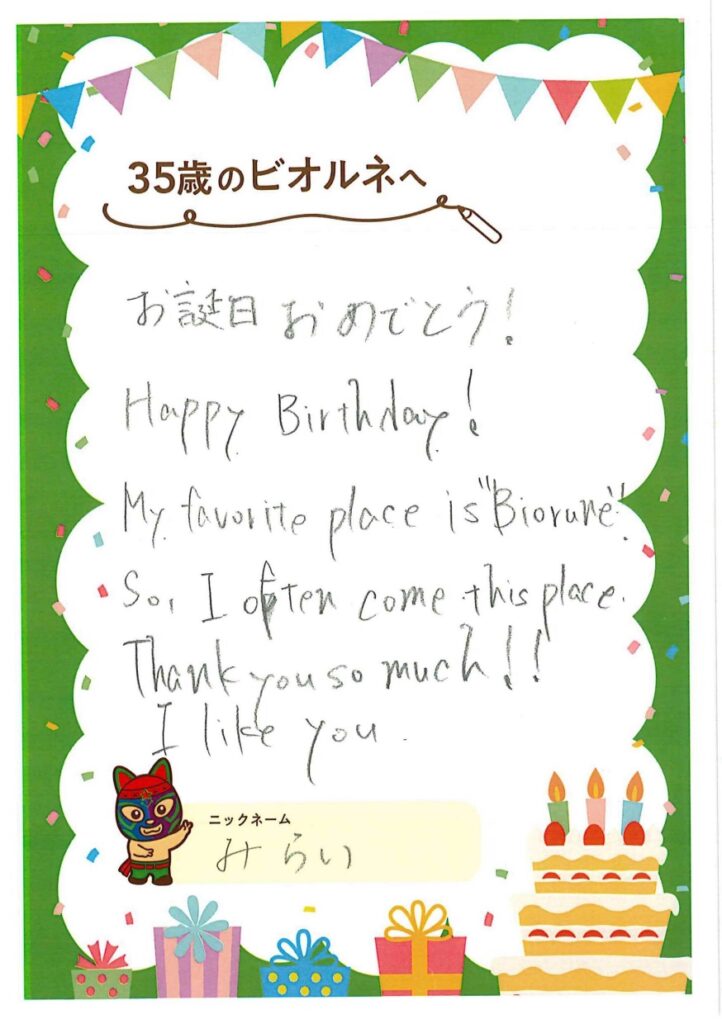 35歳のビオルネへ
お誕生日 おめでとう!
Happy Birthday!
My favorite place is "Biorune".
So, I often come this place.
Thank you so much!!
I like you.
ニックネーム
みらい